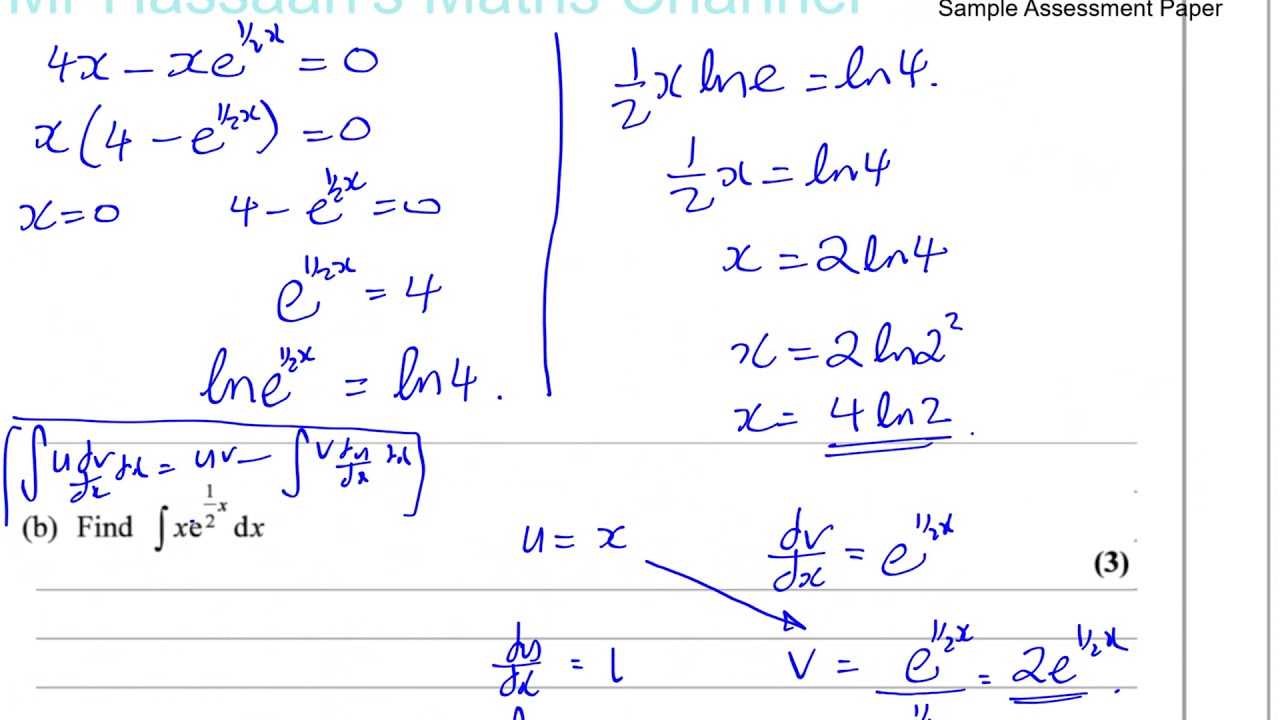 Mr Hassaan's Maths Channel
Sample Assessment Paper
4x - xe^{1/2x} = 0
x(4 - e^{1/2x}) = 0
x = 0    4 - e^{1/2x} = 0
e^{1/2x} = 4
ln e^{1/2x} = ln 4.
1/2 x ln e = ln 4.
1/2 x = ln 4
x = 2 ln 4
x = 2 ln 2^2
x = 4 ln 2.
∫ u dv/dx dx = uv - ∫ v du/dx dx
(b) Find ∫ xe^{1/2 x} dx
(3)
u = x    dv/dx = e^{1/2x}
du/dx = 1    v = e^{1/2x}/1/ = 2e^{1/2x}.